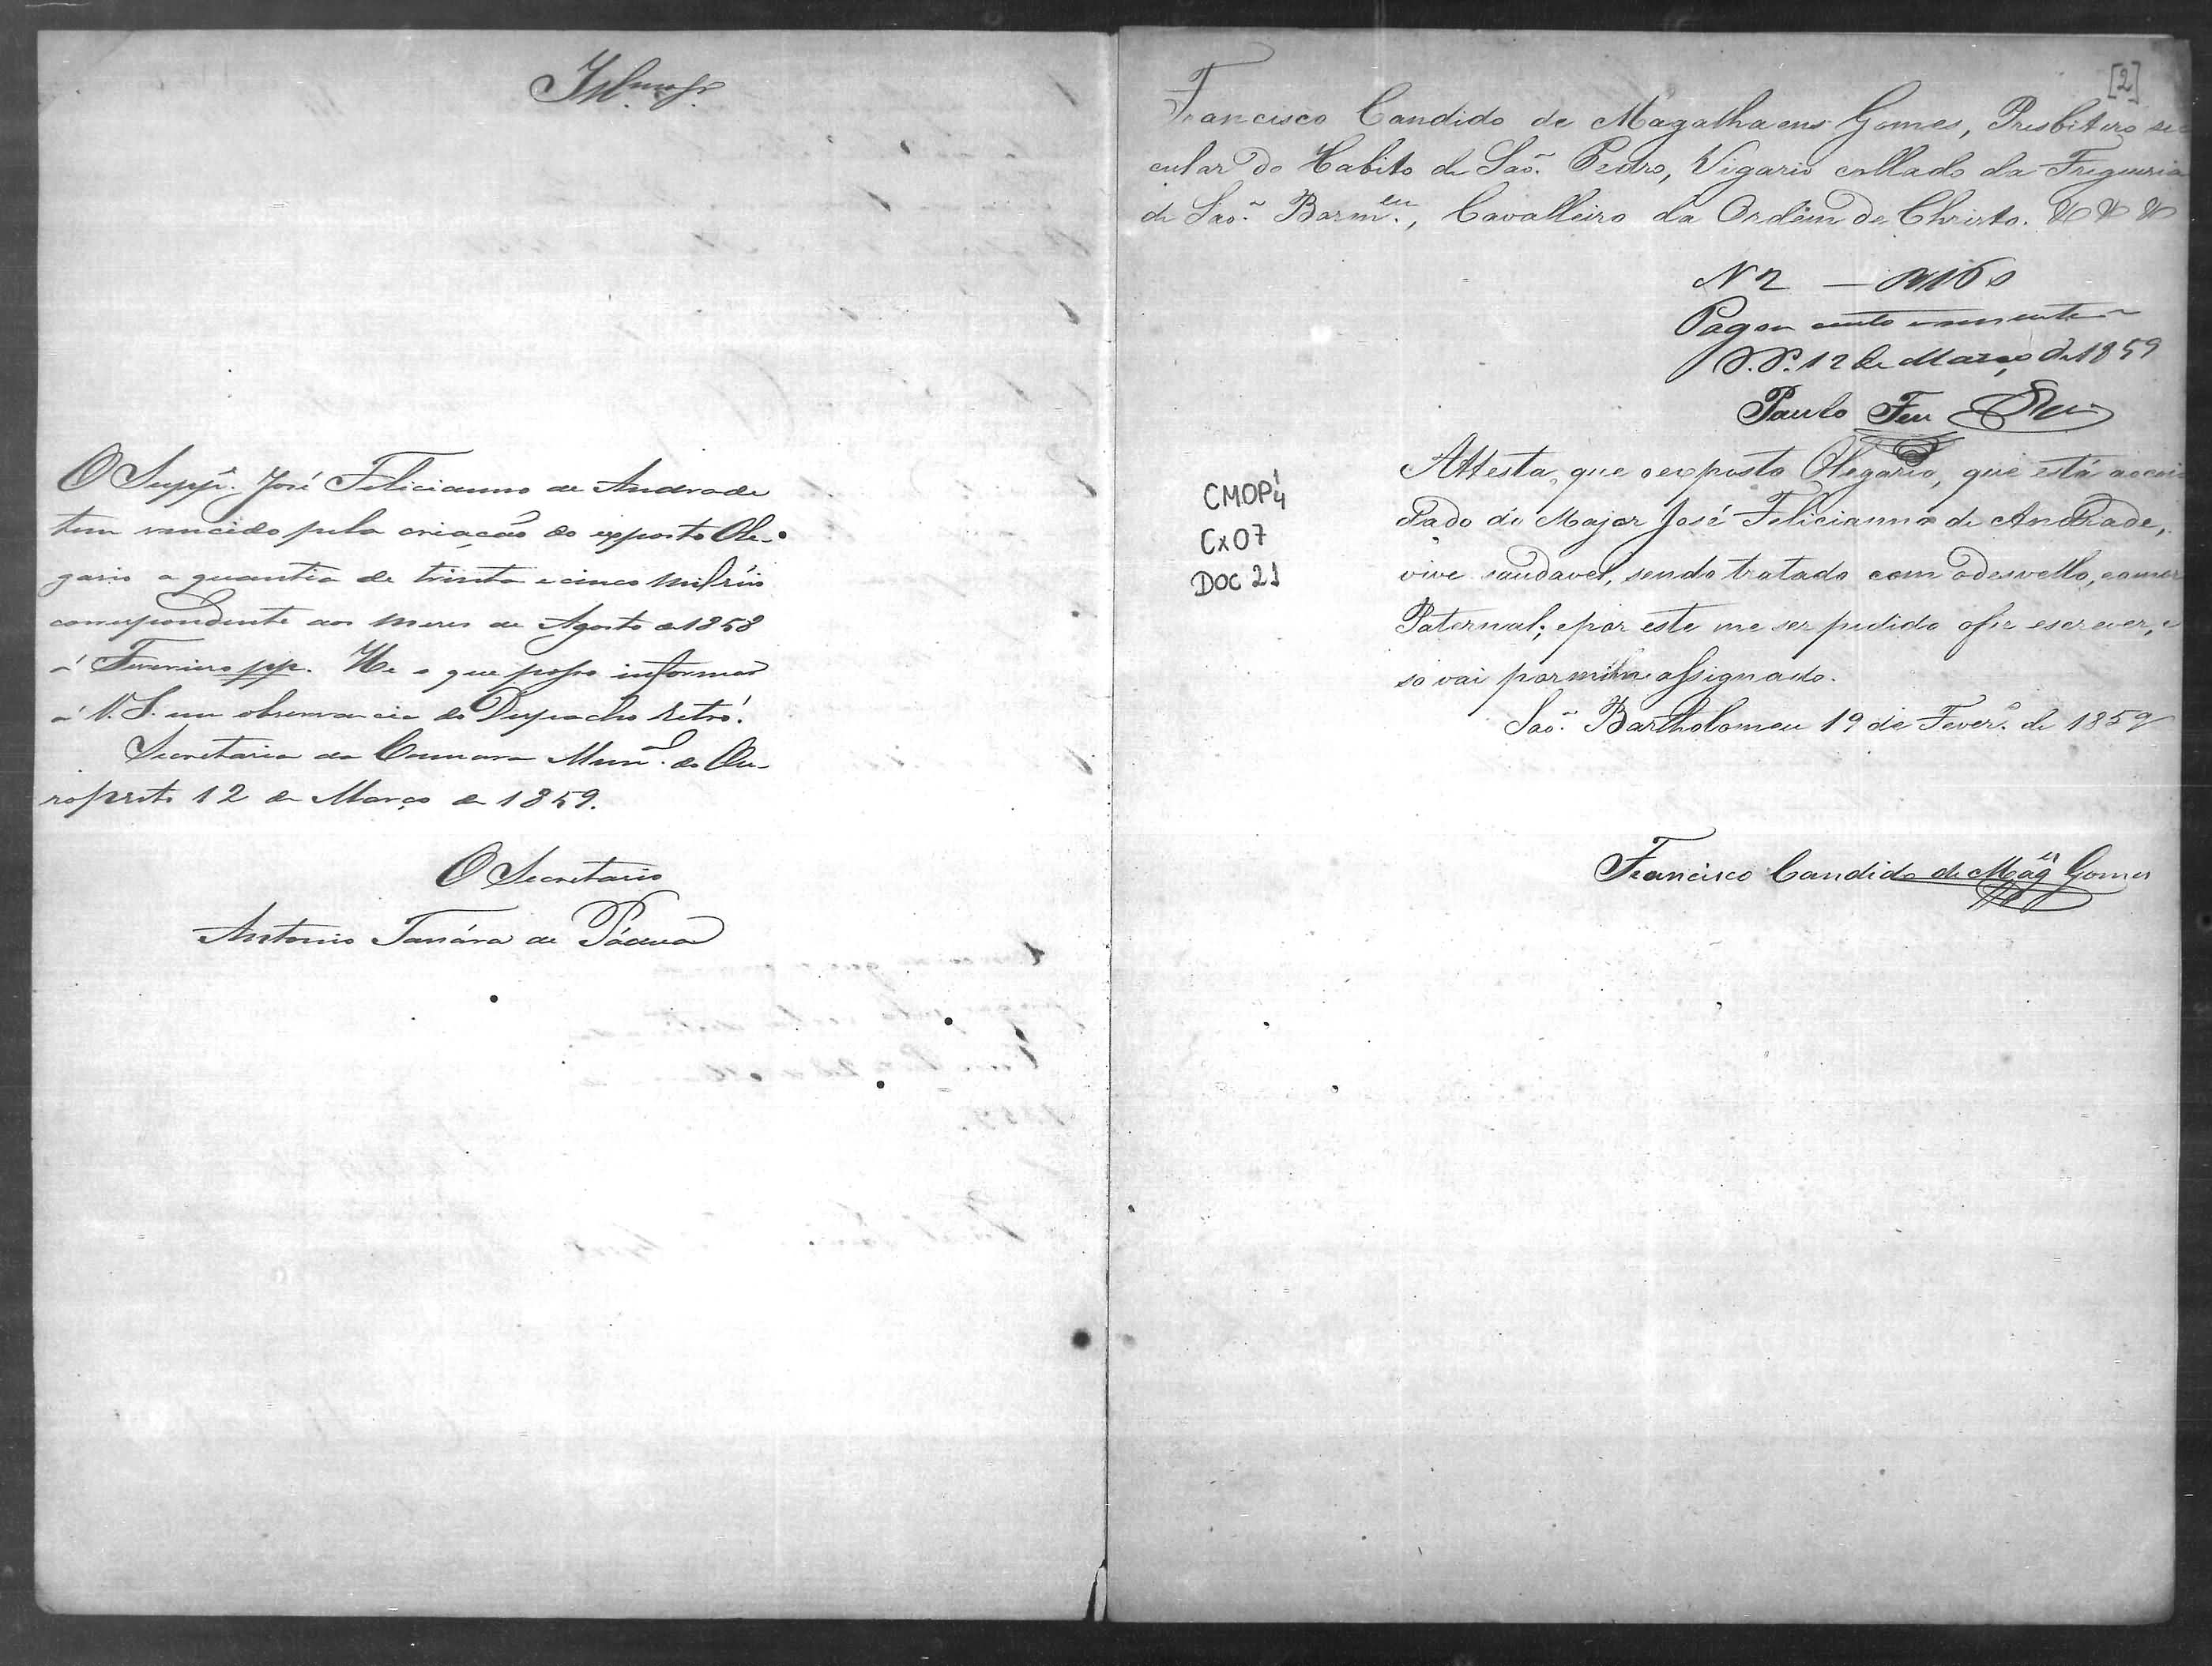 Illmo Sr.
O Suppe. José Felicianno de Andrade
tem vencido pela criação do exposto Ole-
gario a quantia de trinta e cinco mil reis
correspondente aos mezes de Agosto de 1858
a' Fevereiro pp. He o que posso informar
a' V.S. em observancia do Despacho retró.
Secretaria da Camara Munal. do Ou-
ropreto 12 de Março de 1859.
O Secretario
Antonio de Pádua
[2]
Francisco Candido de Magalhaens Gomes, Presbitero se
cular do Habito de Saõ. Pedro, Vigario collado da Freguesia
de Saõ. Barmeu., Cavalleiro da Ordêm de Christo. & & &
N 2 — 160
Pagou cento e
O.P. 12 de Março de 1859
Paulo
CMOP 4
Cx 07
DOC 21
Attesta, que o exposto Olegario, que está a
dado do Major José Felicianno de Andrade,
vive saudavel, sendo tratado com o desvello, e amor
Paternal; e por este me ser pedido o fiz escrever, e
so vai por mim assignado.
Saõ. Bartholomeu 19 de Fevero. de 1859
Francisco Candido de Mages Gomes